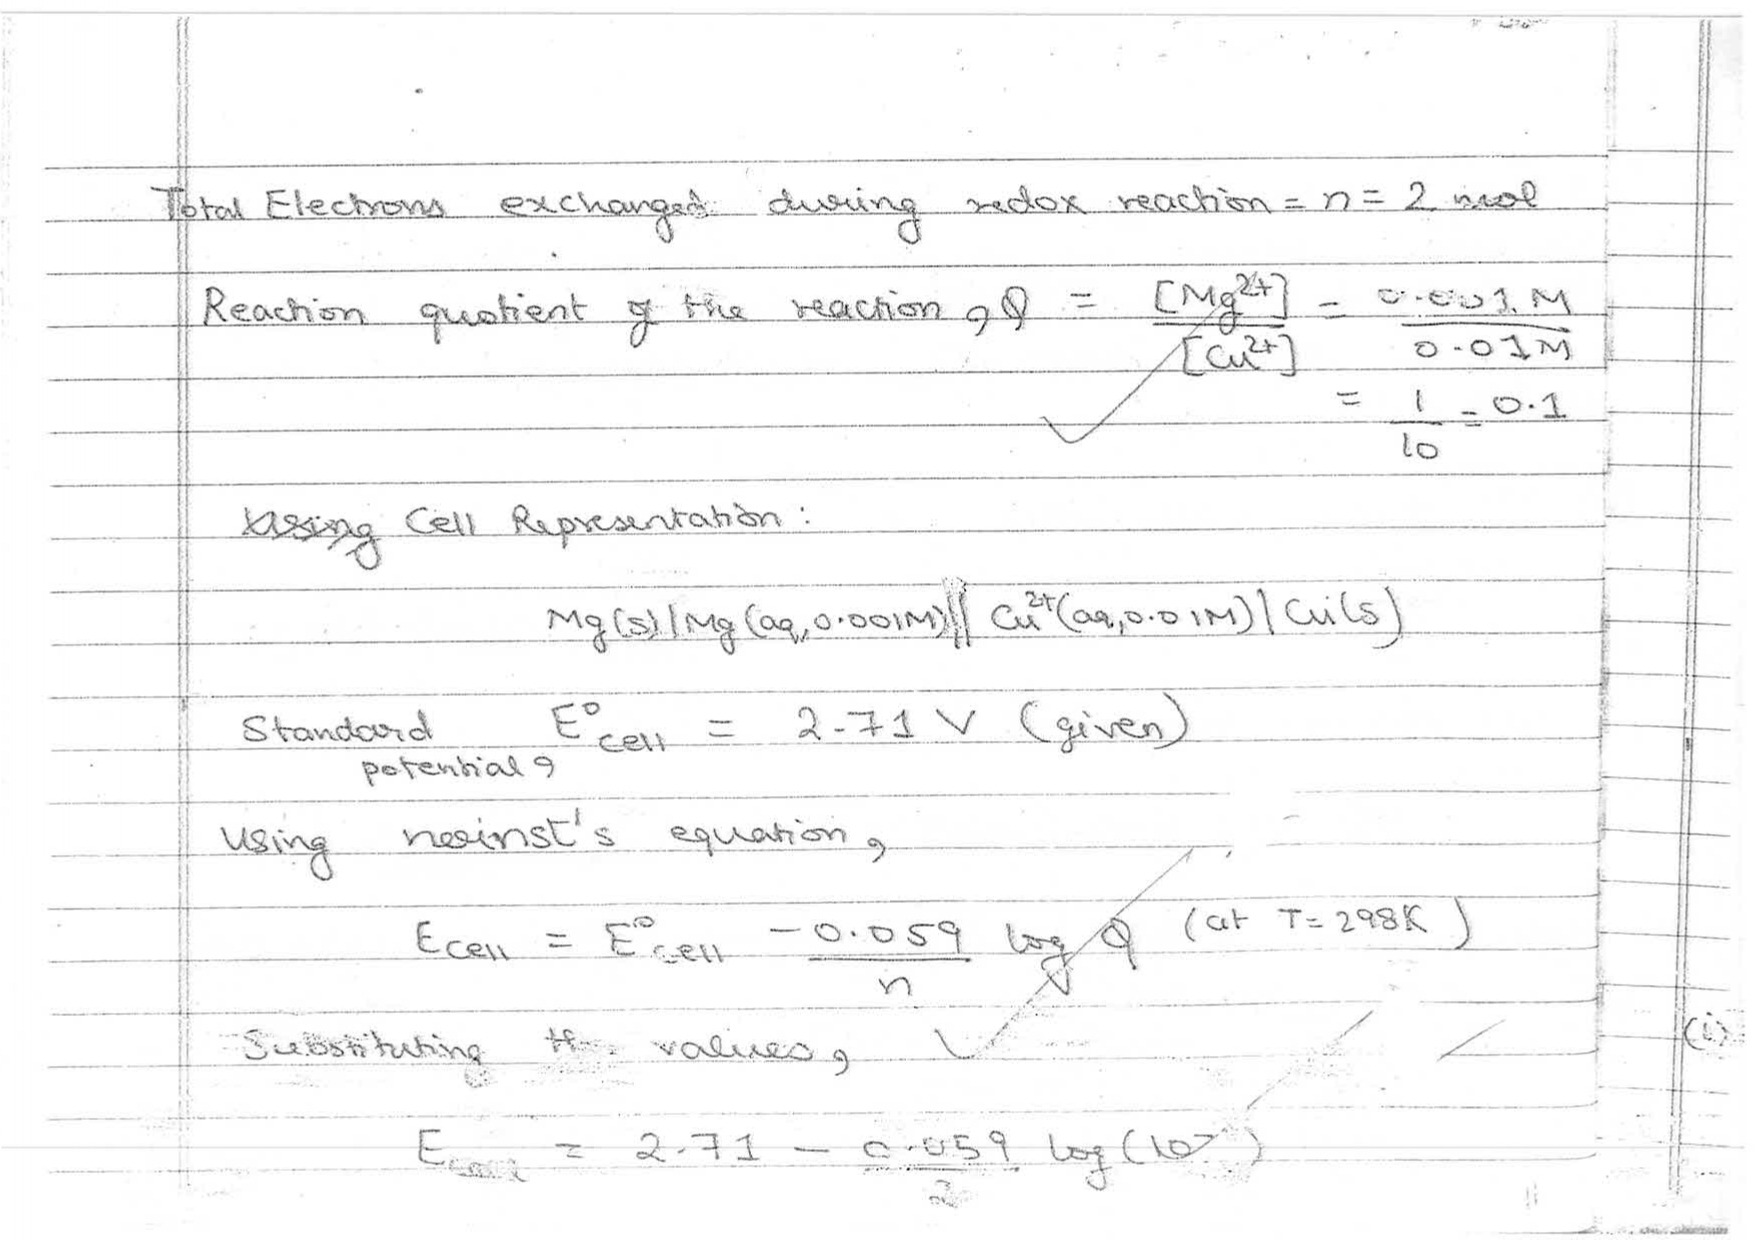 Total Electrons exchanged during redox reaction = n = 2 mol
Reaction quotient of the reaction, Q = [Mg²⁺] / [Cu²⁺] = 0.001 M / 0.01 M
= 1/10 = 0.1
Cell Representation:
Mg(s) | Mg (aq, 0.001M) || Cu²⁺ (aq, 0.01M) | Cu(s)
Standard potential, E°cell = 2.71 V (given)
Using nerinst's equation,
Ecell = E°cell - 0.059 / n log Q (at T = 298K)
Substituting the values,
Ecell = 2.71 - 0.059 / 2 log (10
(i)